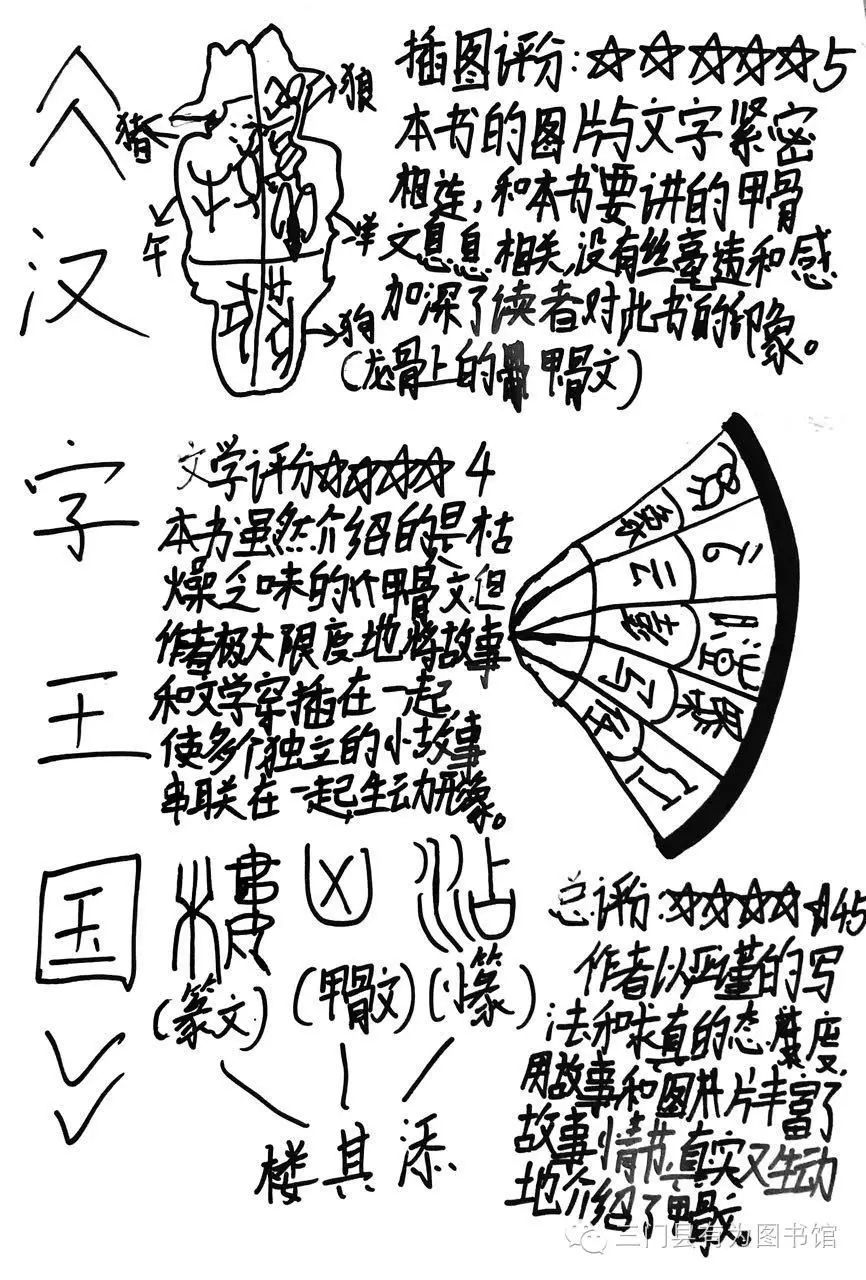 《汉字王国》
插图评分:☆☆☆☆☆5
本书的图片与文字紧密
相连,和本书要讲的甲骨
文息息相关,没有丝毫违和感
加深了读者对此书的印象。
(龙骨上的甲骨文)
猪
狼
午
羊
狗
文学评分☆☆☆☆4
本书虽然介绍的是枯
燥乏味的甲骨文但
作者极大限度地将故事
和文学穿插在一起
使多个独立的小故事
串联在一起,生动形象。
象
云
彭
马
工
(篆文)
(甲骨文)
(小篆)
楼其添
总评分:☆☆☆☆45
作者以严谨的写
法和求真的态度,
用故事和图片丰富了
故事情节,真实又生动
地介绍了甲骨文。
三门县有为图书馆